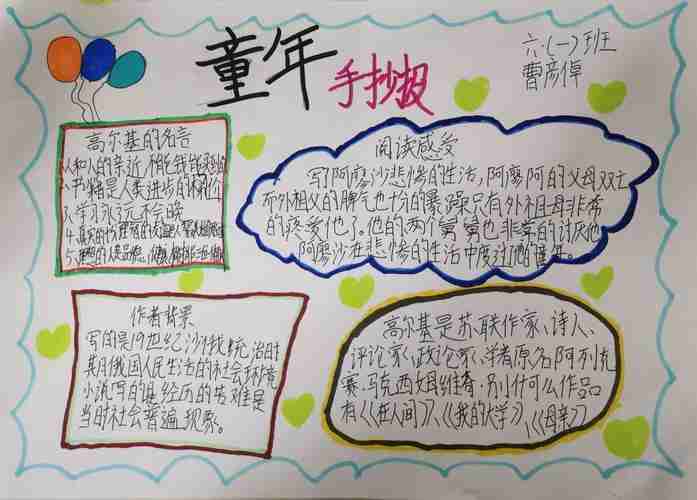 童年
手抄报
六.(一)班
曹彦倬
高尔基的名言
2.书籍是人类进步的阶梯
3.学习永远不会晚
阅读感受
写了阿廖沙悲惨的生活,阿廖阿的父母双亡
外祖父的脾气也十分的暴躁只有外祖母非常
的疼爱他了。他的两个舅舅也非常的讨厌他
阿廖沙在悲惨的生活中度过他的童年。
作者背景
写的是19世纪沙俄统治时
其月俄国人民生活的社会环境
小说写的是经历的苦难是
当时社会普遍现象。
高尔基是苏联作家、诗人、
评论家、政论家、学者原名阿列克
赛.马克西姆维奇.别什可么作品
有《《在人间》》、《《我的大学》》、《《母亲》》